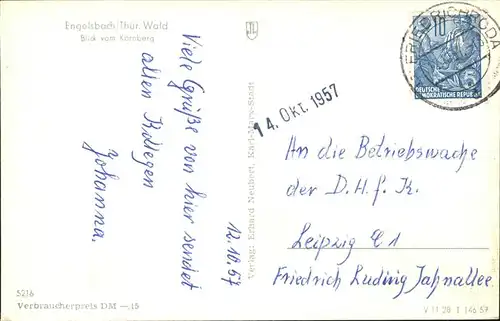 Engelsbach/Thür. Wald
Blick vom Körnberg
Viele Grüße von hier sendet
allen Kollegen
Johanna.
12.10.57
Verlag: Erhard Neubert, Karl-Marx-Stadt
14. Okt. 1957
FRIEDRICHRODA
DEUTSCHE
DEMOKRATISCHE REPUBLIK
5
An die Betriebswache
der D. H. f. K.
Leipzig C1
Friedrich Ludwig Jahnallee.
5216
Verbraucherpreis DM —,15
V 11 28 I 146 57